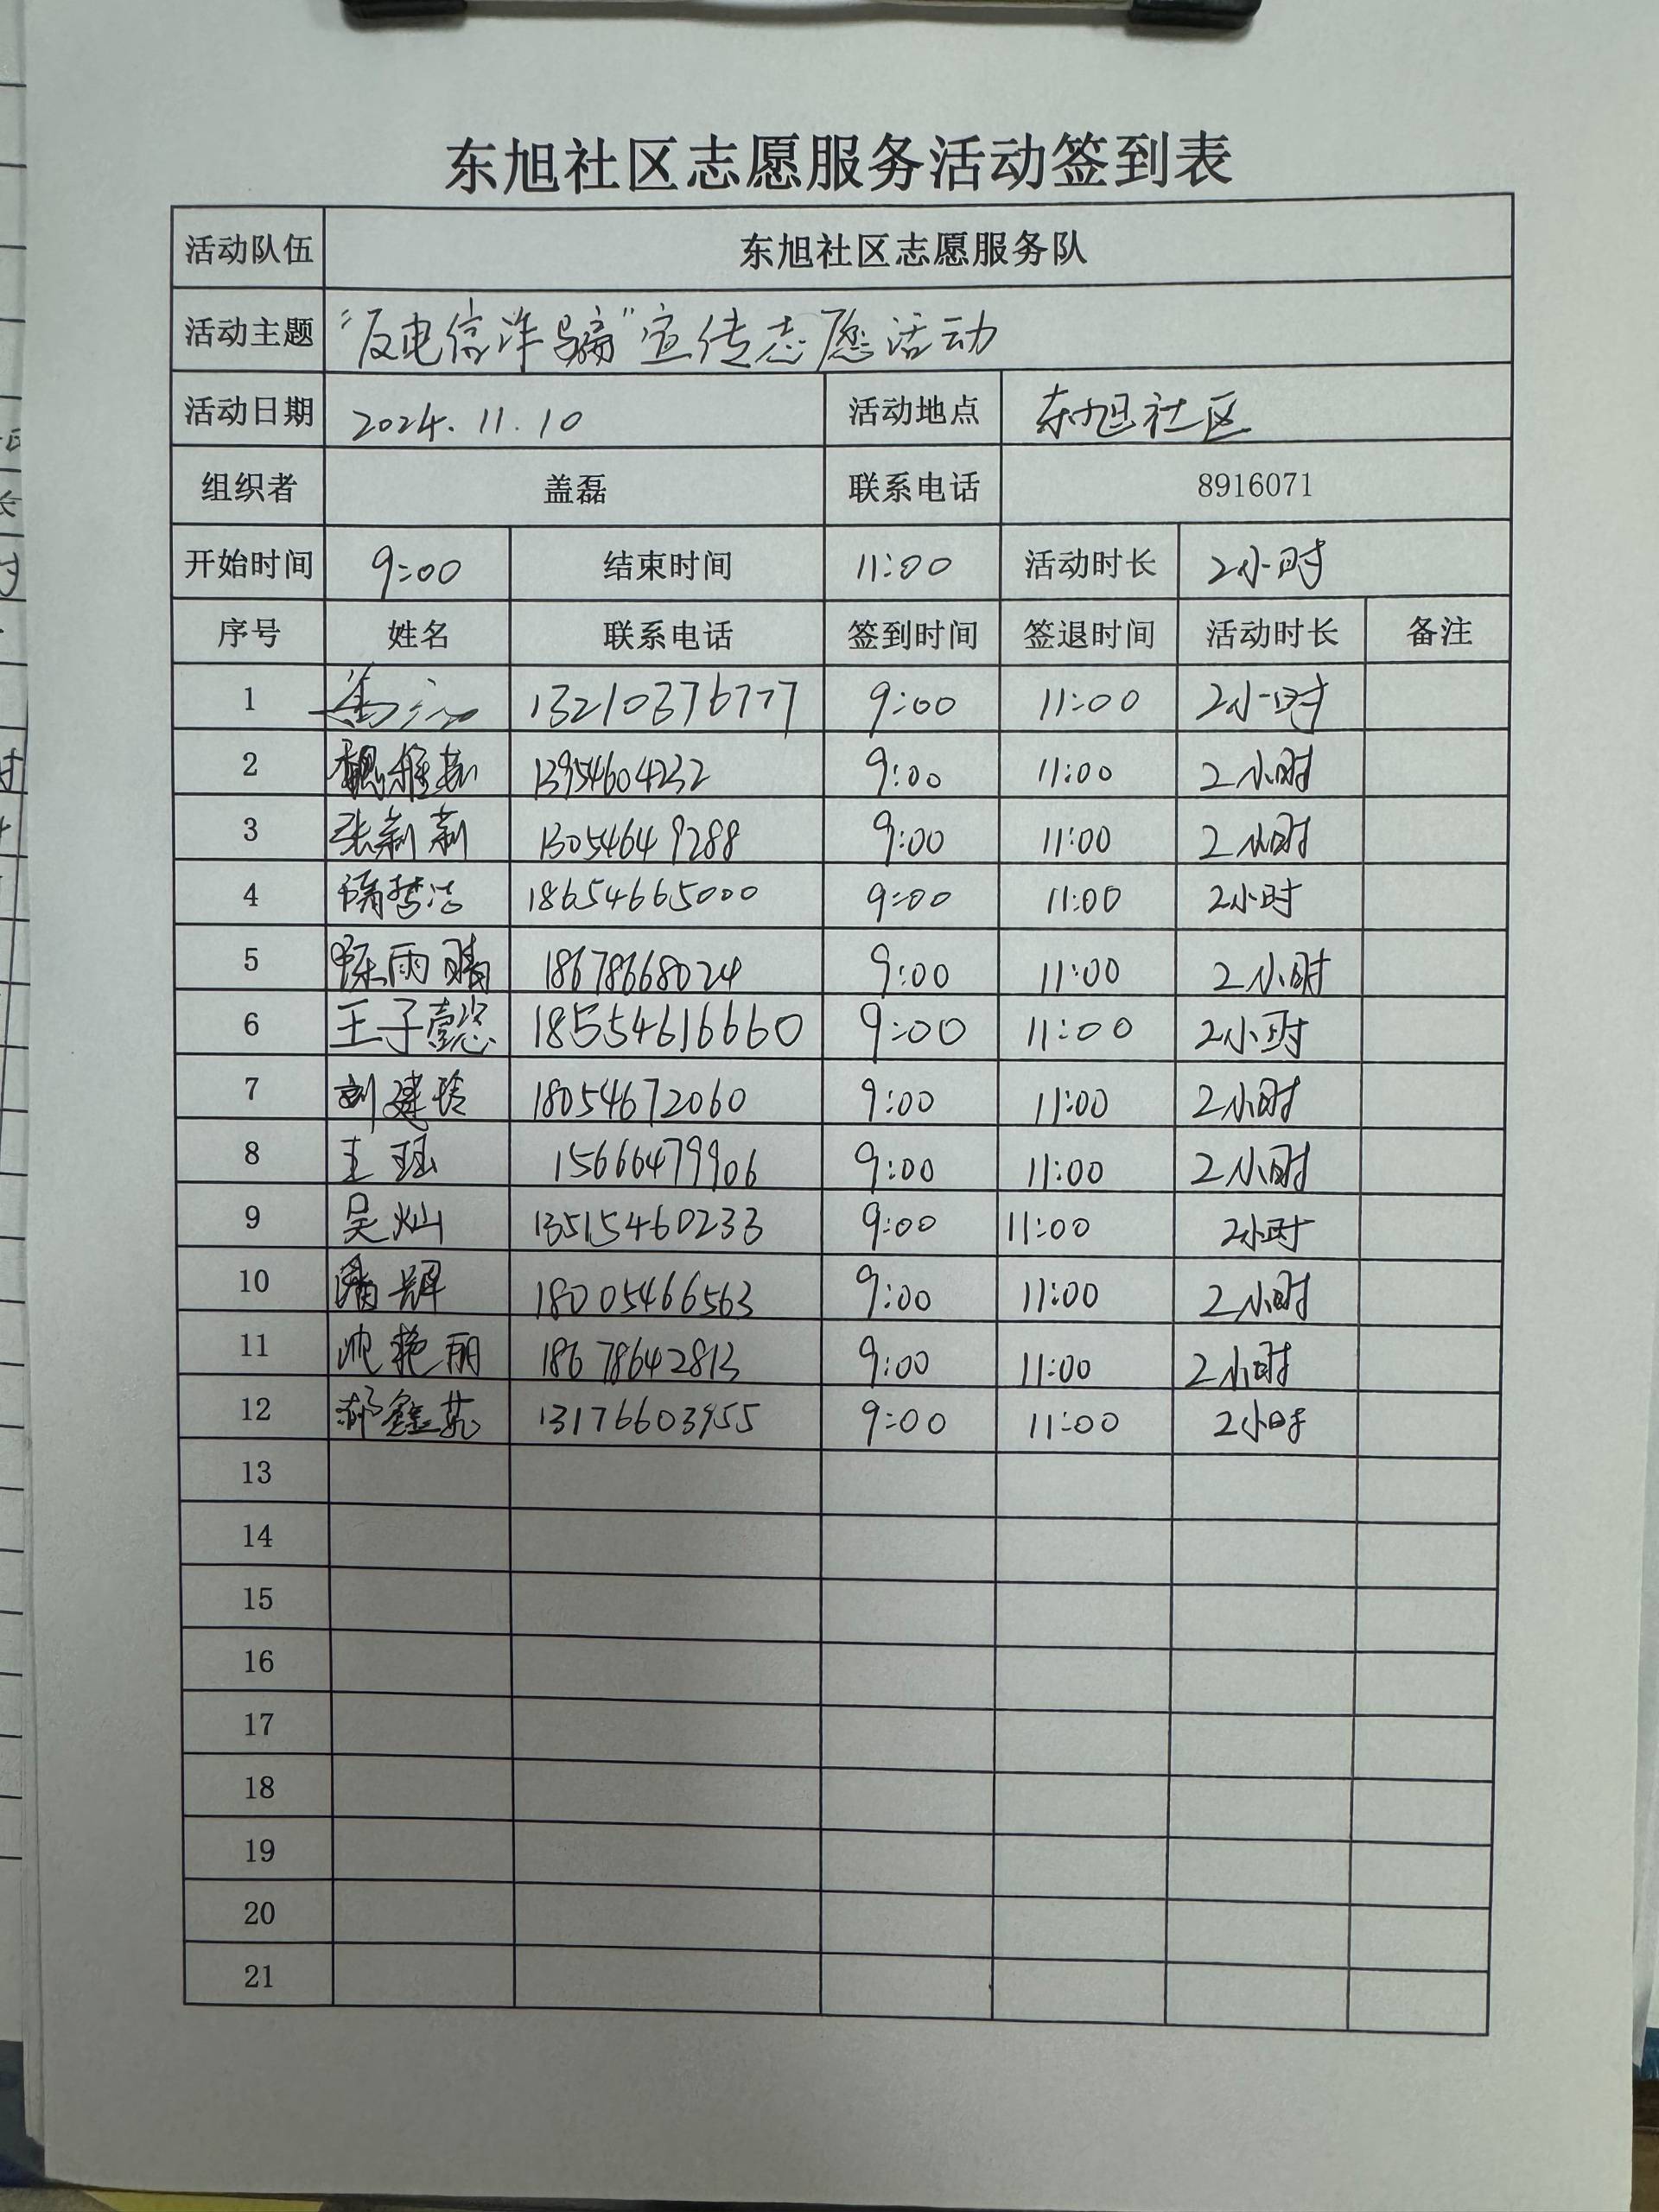 东旭社区志愿服务活动签到表
活动队伍 东旭社区志愿服务队
活动主题 “反电信诈骗”宣传志愿活动
活动日期 2024.11.10 活动地点 东旭社区
组织者 盖磊 联系电话 8916071
开始时间 9:00 结束时间 11:00 活动时长 2小时
序号 姓名 联系电话 签到时间 签退时间 活动时长 备注
1 13210376777 9:00 11:00 2小时
2 13954604232 9:00 11:00 2小时
3 张莉莉 13054649288 9:00 11:00 2小时
4 隋梦洁 18654665000 9:00 11:00 2小时
5 陈雨晴 18678668024 9:00 11:00 2小时
6 王子懿 18554616660 9:00 11:00 2小时
7 刘建玲 18054672060 9:00 11:00 2小时
8 王瑶 15666479906 9:00 11:00 2小时
9 吴灿 13515460233 9:00 11:00 2小时
10 潘辉 18005466563 9:00 11:00 2小时
11 艳丽 18678642813 9:00 11:00 2小时
12 郝鑫 13176603955 9:00 11:00 2小时
13
14
15
16
17
18
19
20
21